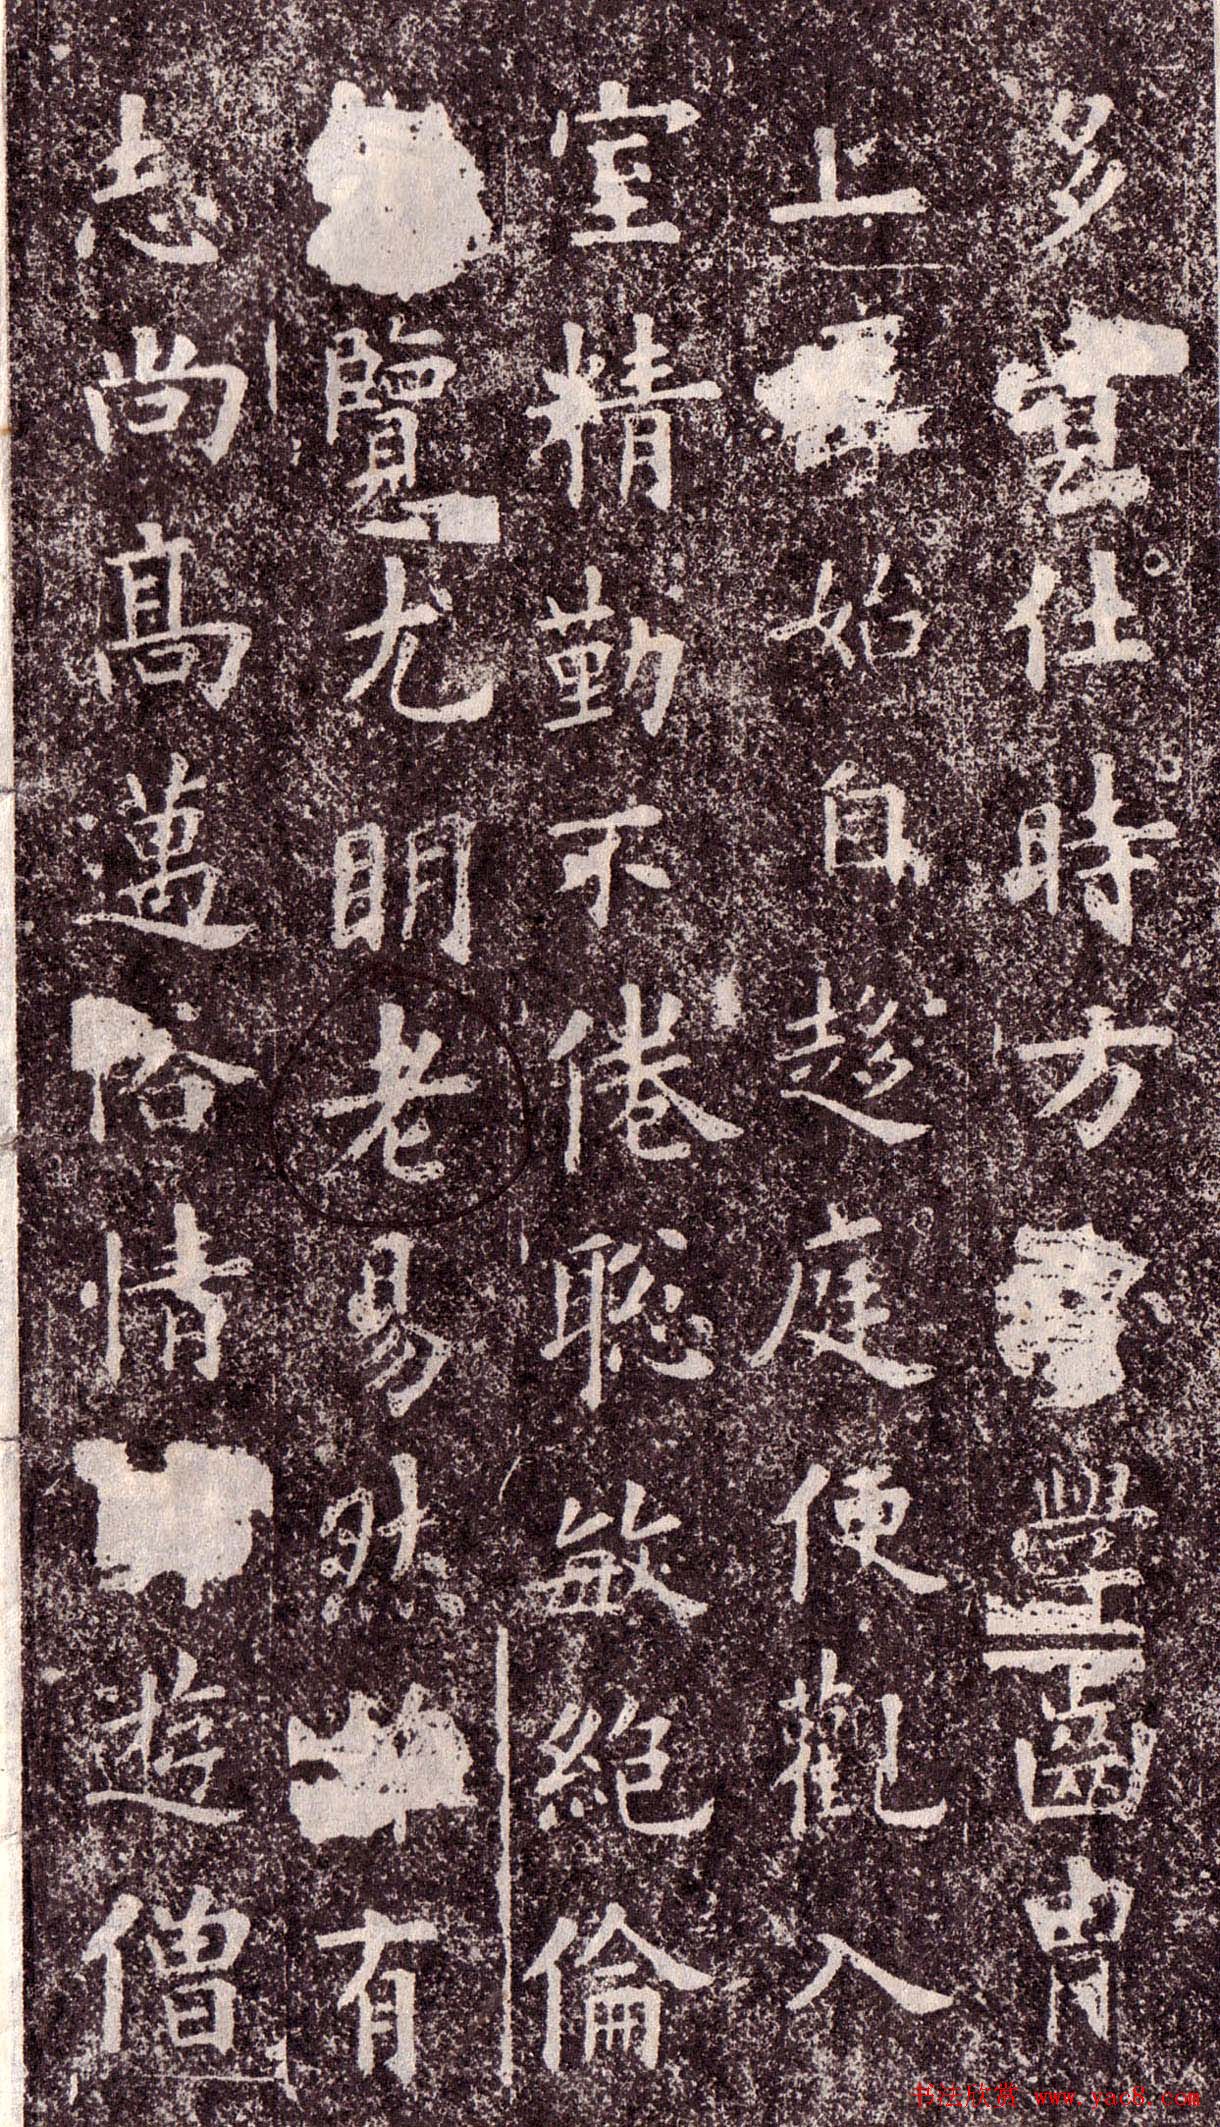 多仕時方學齒胄
上始自趍庭便觀入
室精勤不倦聡敏絶倫
覽尤明老易然有
志尚髙邁俗情遊僧
书法欣赏 www.yac8.com